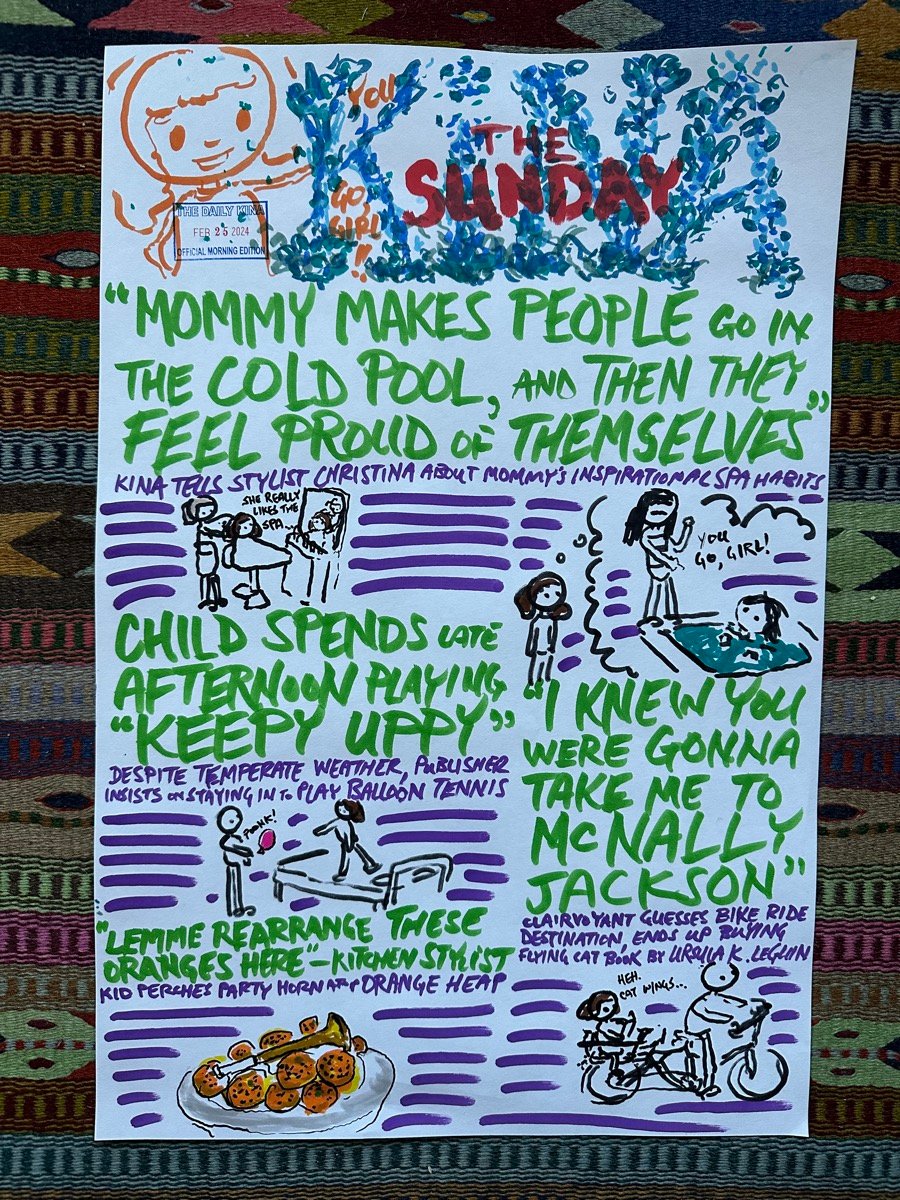 YOU
GO,
GIRL
!!
THE
SUNDAY
KINA
THE DAILY KINA
FEB 25 2024
OFFICIAL MORNING EDITION
"MOMMY MAKES PEOPLE GO IN
THE COLD POOL, AND THEN THEY
FEEL PROUD OF THEMSELVES"
KINA TELLS STYLIST CHRISTINA ABOUT MOMMY'S INSPIRATIONAL SPA HABITS
SHE REALLY
LIKES THE
SPA...
YOU
GO, GIRL!
CHILD SPENDS LATE
AFTERNOON PLAYING
"KEEPY UPPY"
DESPITE TEMPERATE WEATHER, PUBLISHER
INSISTS ON STAYING IN TO PLAY BALLOON TENNIS
POONK!
"I KNEW YOU
WERE GONNA
TAKE ME TO
MCNALLY
JACKSON"
CLAIRVOYANT GUESSES BIKE RIDE
DESTINATION, ENDS UP BUYING
FLYING CAT BOOK BY URSULA K. LEGUIN
HEH.
CAT WINGS...
"LEMME REARRANGE THESE
ORANGES HERE" – KITCHEN STYLIST
KID PERCHES PARTY HORN ATOP ORANGE HEAP